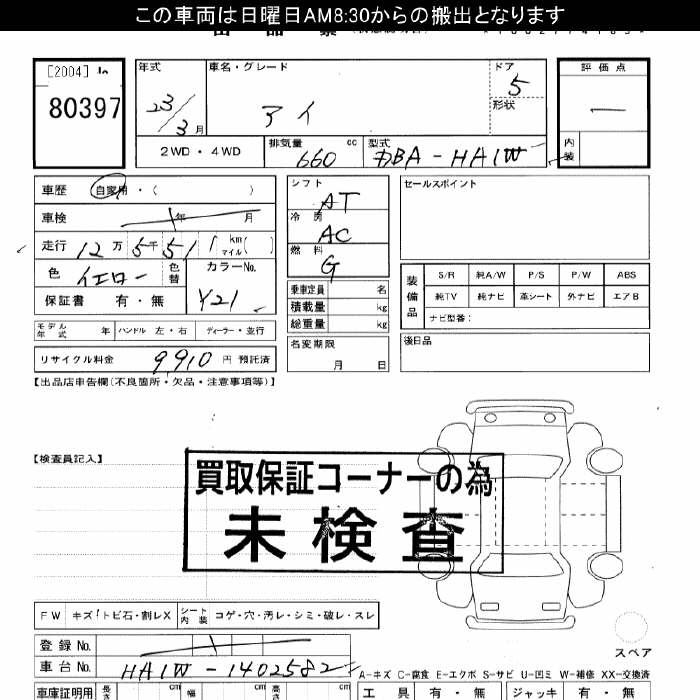 この車両は日曜日AM8:30からの搬出となります
[2004]
80397
年式
23/3月
車名・グレード
アイ
ドア
5
形状
評価点
—
内装
2WD・4WD
排気量
660 cc
型式
DBA-HA1W
車歴 自家用・( )
車検 年 月
走行 12万5千51 km マイル( )
色 イエロー 色替
カラーNo.
Y21
保証書 有・無
モデル年式 年 ハンドル 左・右 ディーラー・並行
リサイクル料金 9910 円 預託済
シフト
AT
冷房
AC
燃料
G
乗車定員 名
積載量 kg
総重量 kg
名変期限
月 日
セールスポイント
装備品
S/R 純A/W P/S P/W ABS
純TV 純ナビ 革シート 外ナビ エアB
ナビ型番:
後日品
【出品店申告欄(不良箇所・欠品・注意事項等)】
【検査員記入】
買取保証コーナーの為
未検査
FW キズ!トビ石・割レX シート内装 コゲ・穴・汚レ・シミ・破レ・スレ
登録No.
車台No. HA1W-1402582
スペア
A-キズ C-腐食 E-エクボ S-サビ U-凹ミ W-補修 XX-交換済
車庫証明用 長さ cm 幅 cm 高さ cm
工具 有・無 ジャッキ 有・無